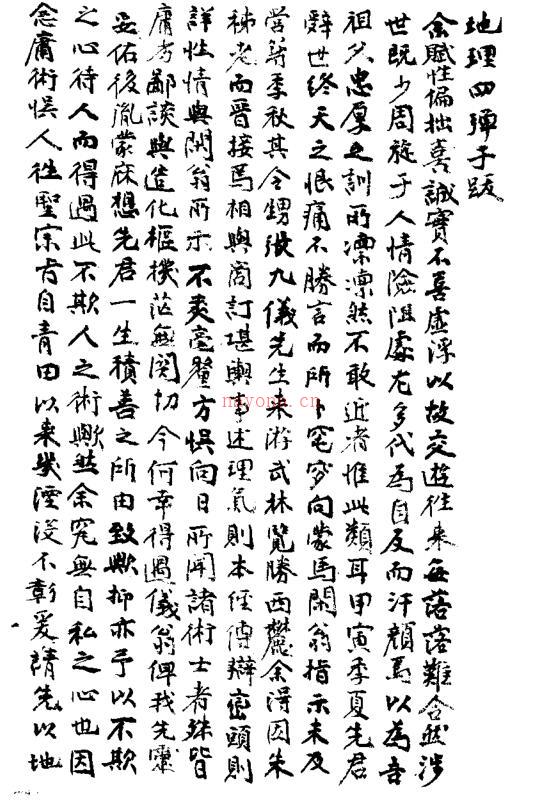 地理四彈子跋
余賦性偏拙喜誠實不喜虛浮以故交遊往來每落落難合然涉
世既少周旋于人情險阻處尤多代為自反而汗顏焉以為吾
祖父忠厚之訓所凜凜然不敢近者惟此類耳甲寅季夏先君
辭世終天之恨痛不勝言而所卜窀穸向蒙馬閑翁指示未及
營葬季秋其令甥張九儀先生來游武林覽勝西麓余得因朱
秭老而晋接焉相與商訂堪輿事述理氣則本經傳辯巒頭則
詳性情與閑翁所示不爽毫釐方悞向日所聞諸術士者殊皆
庸夛鄙談與造化樞機茫無関切今何幸得遇儀翁俾我先靈
妥佑後胤蒙庥想先君一生積善之所由致歟抑亦予以不欺
之心待人而得遇此不欺人之術歟然余究無自私之心也因
念庸術悞人徃聖宗旨自青田以來幾湮没不彰爰請先以地